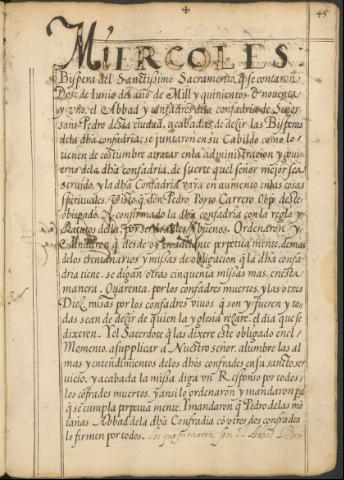 45
MIERCOLES
Bispera del Sanctissimo Sacramento, q̃ se contaron
Doze de Iunio del año de Mill y quinientos e nouenta
y vno, el Abbad y confadres dela confadria de Señor
sanc Pedro desta ciudad, acabadas de dezir las Bisperas
dela dh̃a confadria; se juntaron en su Cabildo como lo
tienen de costumbre a tratar en la administracion y gouie
rno dela dh̃a confadria, de suerte quel señor mejor sea
seruido, y la dh̃a Confadria vaya en aumento en las cosas
spirituales. Visto q̃ don Pedro Porto Carrero Obp̃o deste
obispado. A confirmado la dh̃a confadria con la regla y
statutos della. por
Mandaron q̃ desde oy en adelante perpetua mente, demas
delos trentanarios y missas de obligacion q̃ la dh̃a confa
dria tiene, se digan otras cinquenta missas mas, en esta
manera, Quarenta, por los confadres muertos, y las otras
Diez, missas por los confadres viuos q̃ son y fueren y to
das sean de dezir de quien la yglesia rezare, el dia que se
dixeren. Y el Sacerdote q̃ las dixere este obligado en el
Momento, a supplicar a Nuestro señor, alumbre las al
mas y entendimientos delos dhõs confrades en su sancto ser
uicio, y acabada la missa diga vn Responso por todos
los cõfrades muertos, y ansi lo ordenaron y mandaron pa
q̃ se cumpla perpetua mente. Y mandaron q̃ Pedro delas mõ
tañas Abbad dela dh̃a Confradia cõ otros dos confrades
lo firmen por todos. los que firmaron son el Abbad Pedro